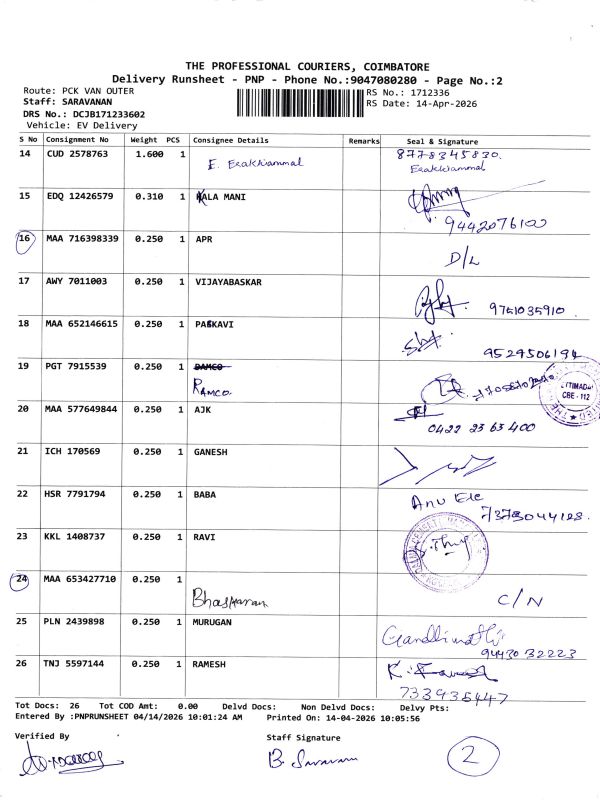 THE PROFESSIONAL COURIERS, COIMBATORE
Delivery Runsheet - PNP - Phone No.:9047080280 - Page No.:2
Route: PCK VAN OUTER
RS No.: 1712336
Staff: SARAVANAN
RS Date: 14-Apr-2026
DRS No.: DCJB171233602
Vehicle: EV Delivery
S No Consignment No Weight PCS Consignee Details Remarks Seal & Signature
14 CUD 2578763 1.600 1 E. Esakkiammal 8778345830.
Esakkiammal
15 EDQ 12426579 0.310 1 KALA MANI
9442076100
16 MAA 716398339 0.250 1 APR D/L
17 AWY 7011003 0.250 1 VIJAYABASKAR 9751035910.
18 MAA 652146615 0.250 1 PASKAVI
9529506194
19 PGT 7915539 0.250 1 DAMCO
RAMCO
CBE - 112
20 MAA 577649844 0.250 1 AJK
0422 23 63 400
21 ICH 170569 0.250 1 GANESH
22 HSR 7791794 0.250 1 BABA Anu Ele
7373044128.
23 KKL 1408737 0.250 1 RAVI
24 MAA 653427710 0.250 1
Bhaskaran C/N
25 PLN 2439898 0.250 1 MURUGAN Gandhimathi
9443032223
26 TNJ 5597144 0.250 1 RAMESH
733935447
Tot Docs: 26 Tot COD Amt: 0.00 Delvd Docs: Non Delvd Docs: Delvy Pts:
Entered By :PNPRUNSHEET 04/14/2026 10:01:24 AM Printed On: 14-04-2026 10:05:56
Verified By Staff Signature
B. Saravanan
2